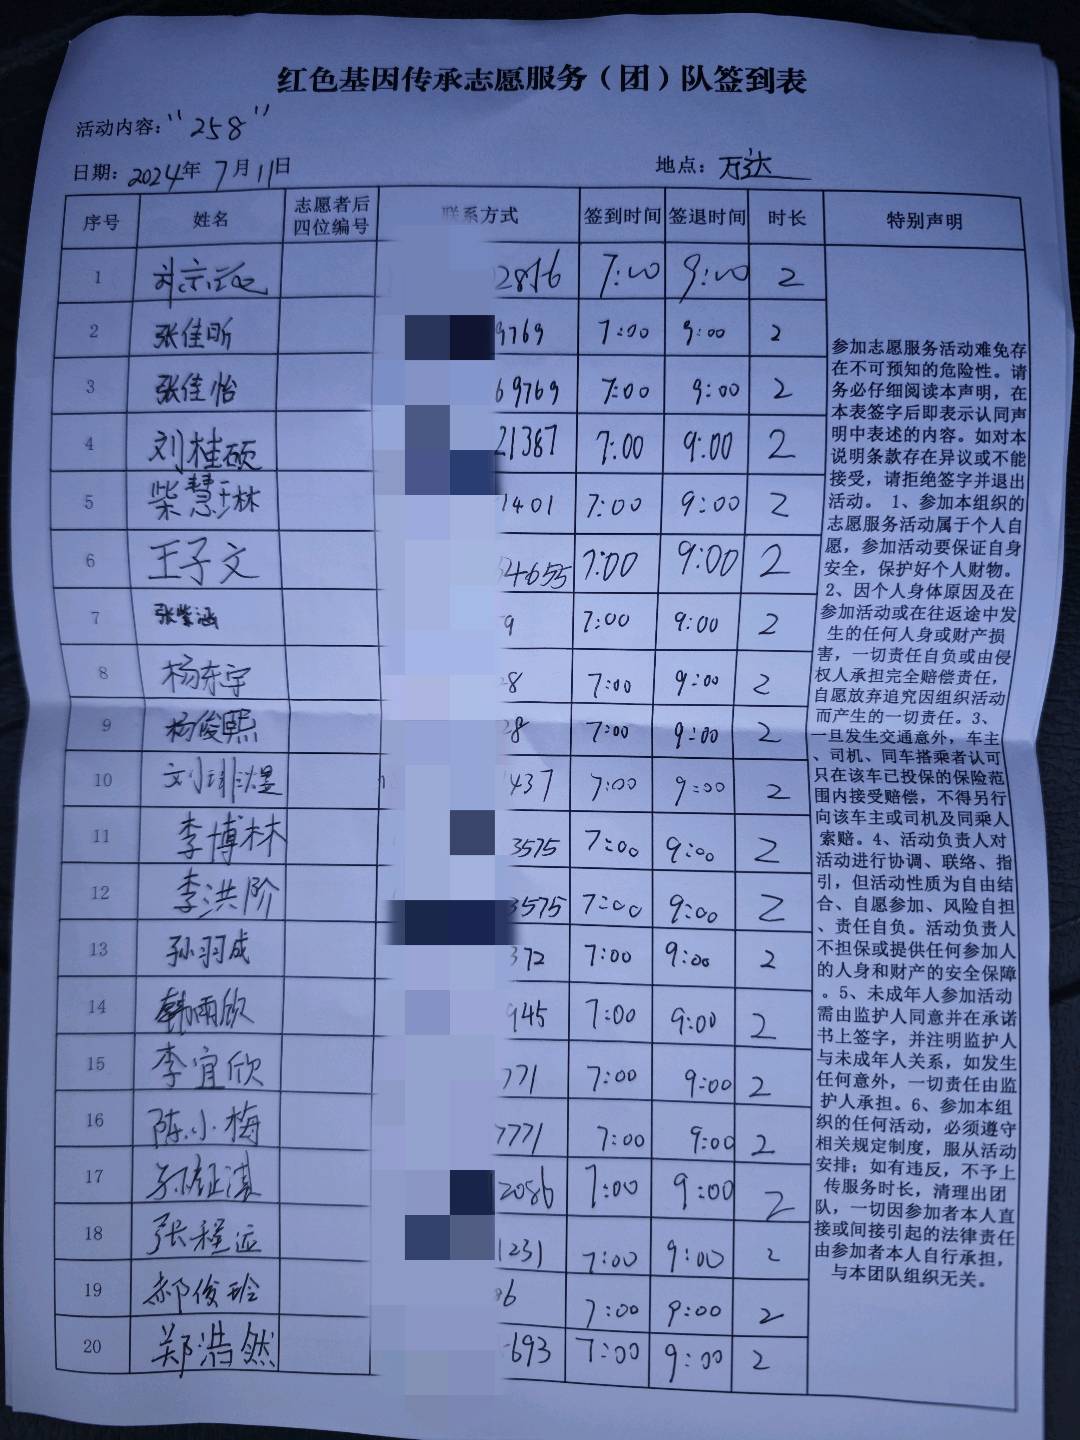 红色基因传承志愿服务（团）队签到表
活动内容："258"
日期：2024年7月11日 地点：万达
序号 姓名 志愿者后四位编号 联系方式 签到时间 签退时间 时长 特别声明
1 7:00 9:00 2
2 张佳昕 9769 7:00 9:00 2
3 张佳怡 69769 7:00 9:00 2
4 刘桂硕 21387 7:00 9:00 2
5 柴慧琳 1401 7:00 9:00 2
6 王子文 34655 7:00 9:00 2
7 张紫涵 9 7:00 9:00 2
8 杨东宇 28 7:00 9:00 2
9 杨俊熙 28 7:00 9:00 2
10 437 7:00 9:00 2
11 李博林 3575 7:00 9:00 2
12 李洪阶 3575 7:00 9:00 2
13 孙羽成 372 7:00 9:00 2
14 韩雨欣 945 7:00 9:00 2
15 李宜欣 771 7:00 9:00 2
16 陈小梅 7771 7:00 9:00 2
17 2086 7:00 9:00 2
18 张程远 1231 7:00 9:00 2
19 郝俊玲 86 7:00 9:00 2
20 郑浩然 693 7:00 9:00 2
参加志愿服务活动难免存
在不可预知的危险性。请
务必仔细阅读本声明，在
本表签字后即表示认同声
明中表述的内容。如对本
说明条款存在异议或不能
接受，请拒绝签字并退出
活动。 1、参加本组织的
志愿服务活动属于个人自
愿，参加活动要保证自身
安全，保护好个人财物。
2、因个人身体原因及在
参加活动或在往返途中发
生的任何人身或财产损
害，一切责任自负或由侵
权人承担完全赔偿责任，
自愿放弃追究因组织活动
而产生的一切责任。3、
一旦发生交通意外，车主
、司机、同车搭乘者认可
只在该车已投保的保险范
围内接受赔偿，不得另行
向该车主或司机及同乘人
索赔。4、活动负责人对
活动进行协调、联络、指
引，但活动性质为自由结
合、自愿参加、风险自担
、责任自负。活动负责人
不担保或提供任何参加人
的人身和财产的安全保障
。5、未成年人参加活动
需由监护人同意并在承诺
书上签字，并注明监护人
与未成年人关系，如发生
任何意外，一切责任由监
护人承担。6、参加本组
织的任何活动，必须遵守
相关规定制度，服从活动
安排；如有违反，不予上
传服务时长，清理出团
队，一切因参加者本人直
接或间接引起的法律责任
由参加者本人自行承担，
与本团队组织无关。